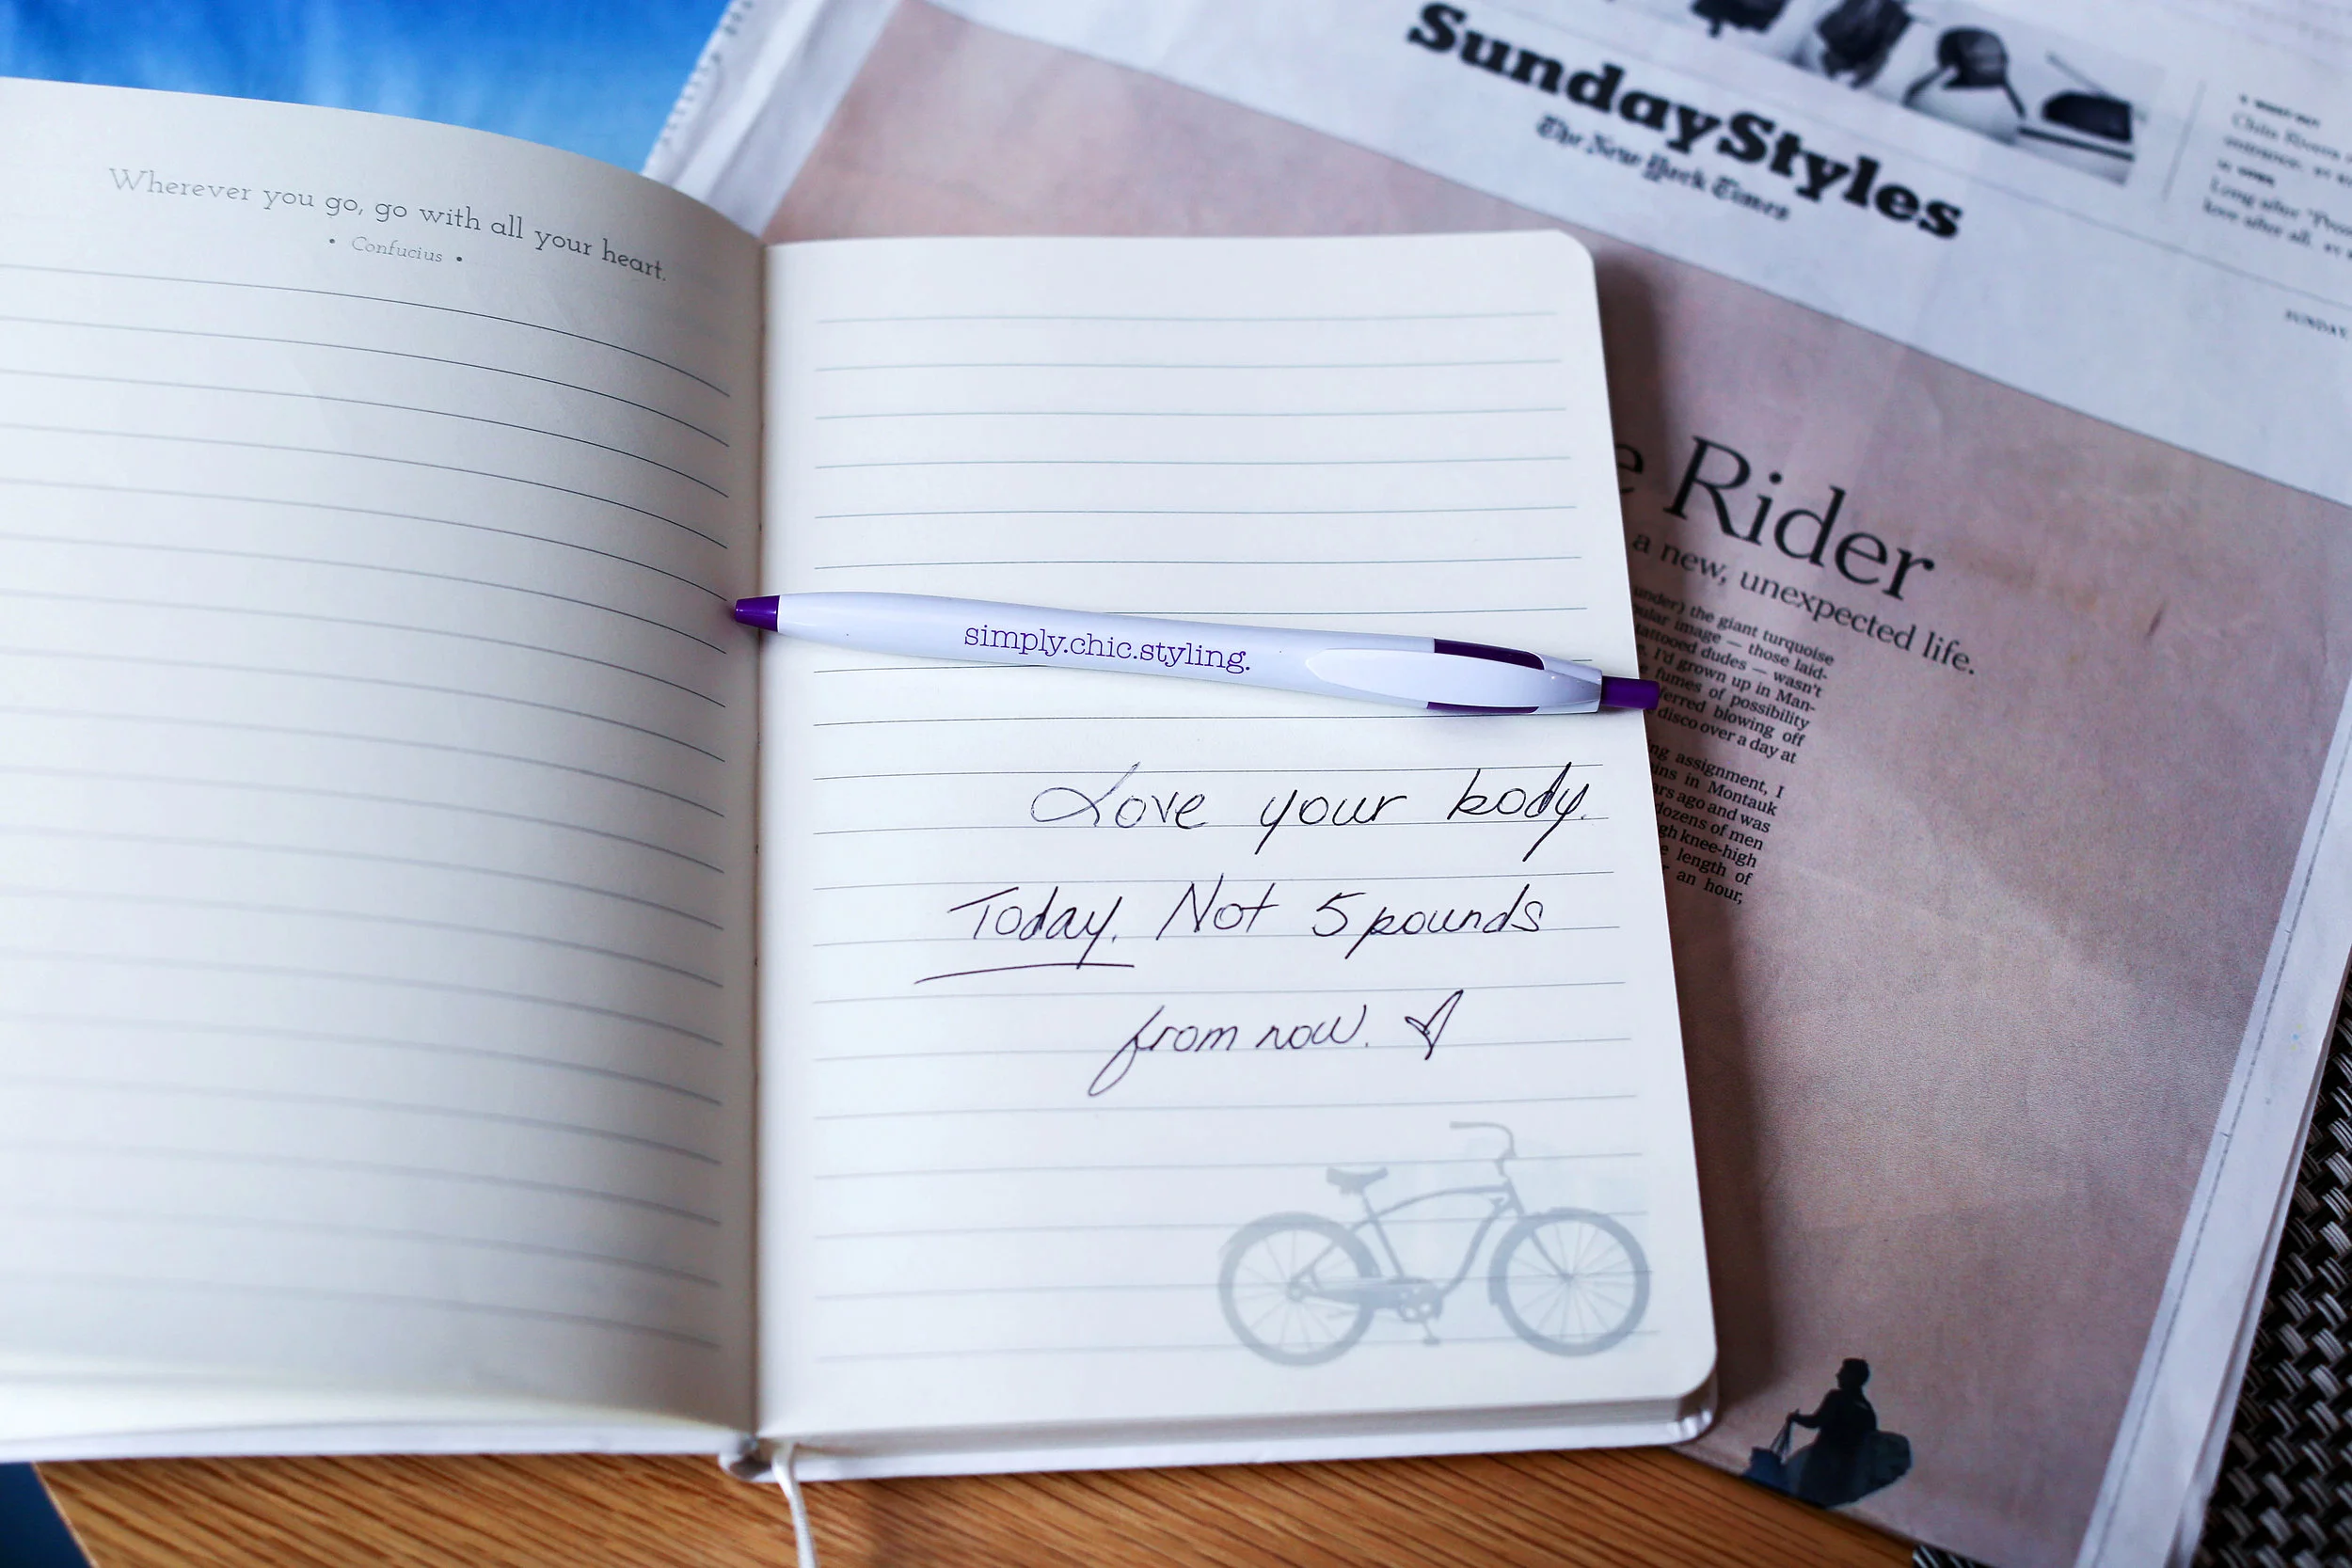 Wherever you go, go with all your heart.
• Confucius •
simply.chic.styling.
Love your body.
Today. Not 5 pounds
from now.
SundayStyles
The New York Times
SUNDAY
Rider
a new, unexpected life.
under) the giant turquoise
image — those laid-
tattooed dudes — wasn't
I'd grown up in Man-
fumes of possibility
blowing off
disco over a day at
assignment, I
in Montauk
ago and was
dozens of men
knee-high
length of
an hour,
Chita Rivera
Long after
love after all.